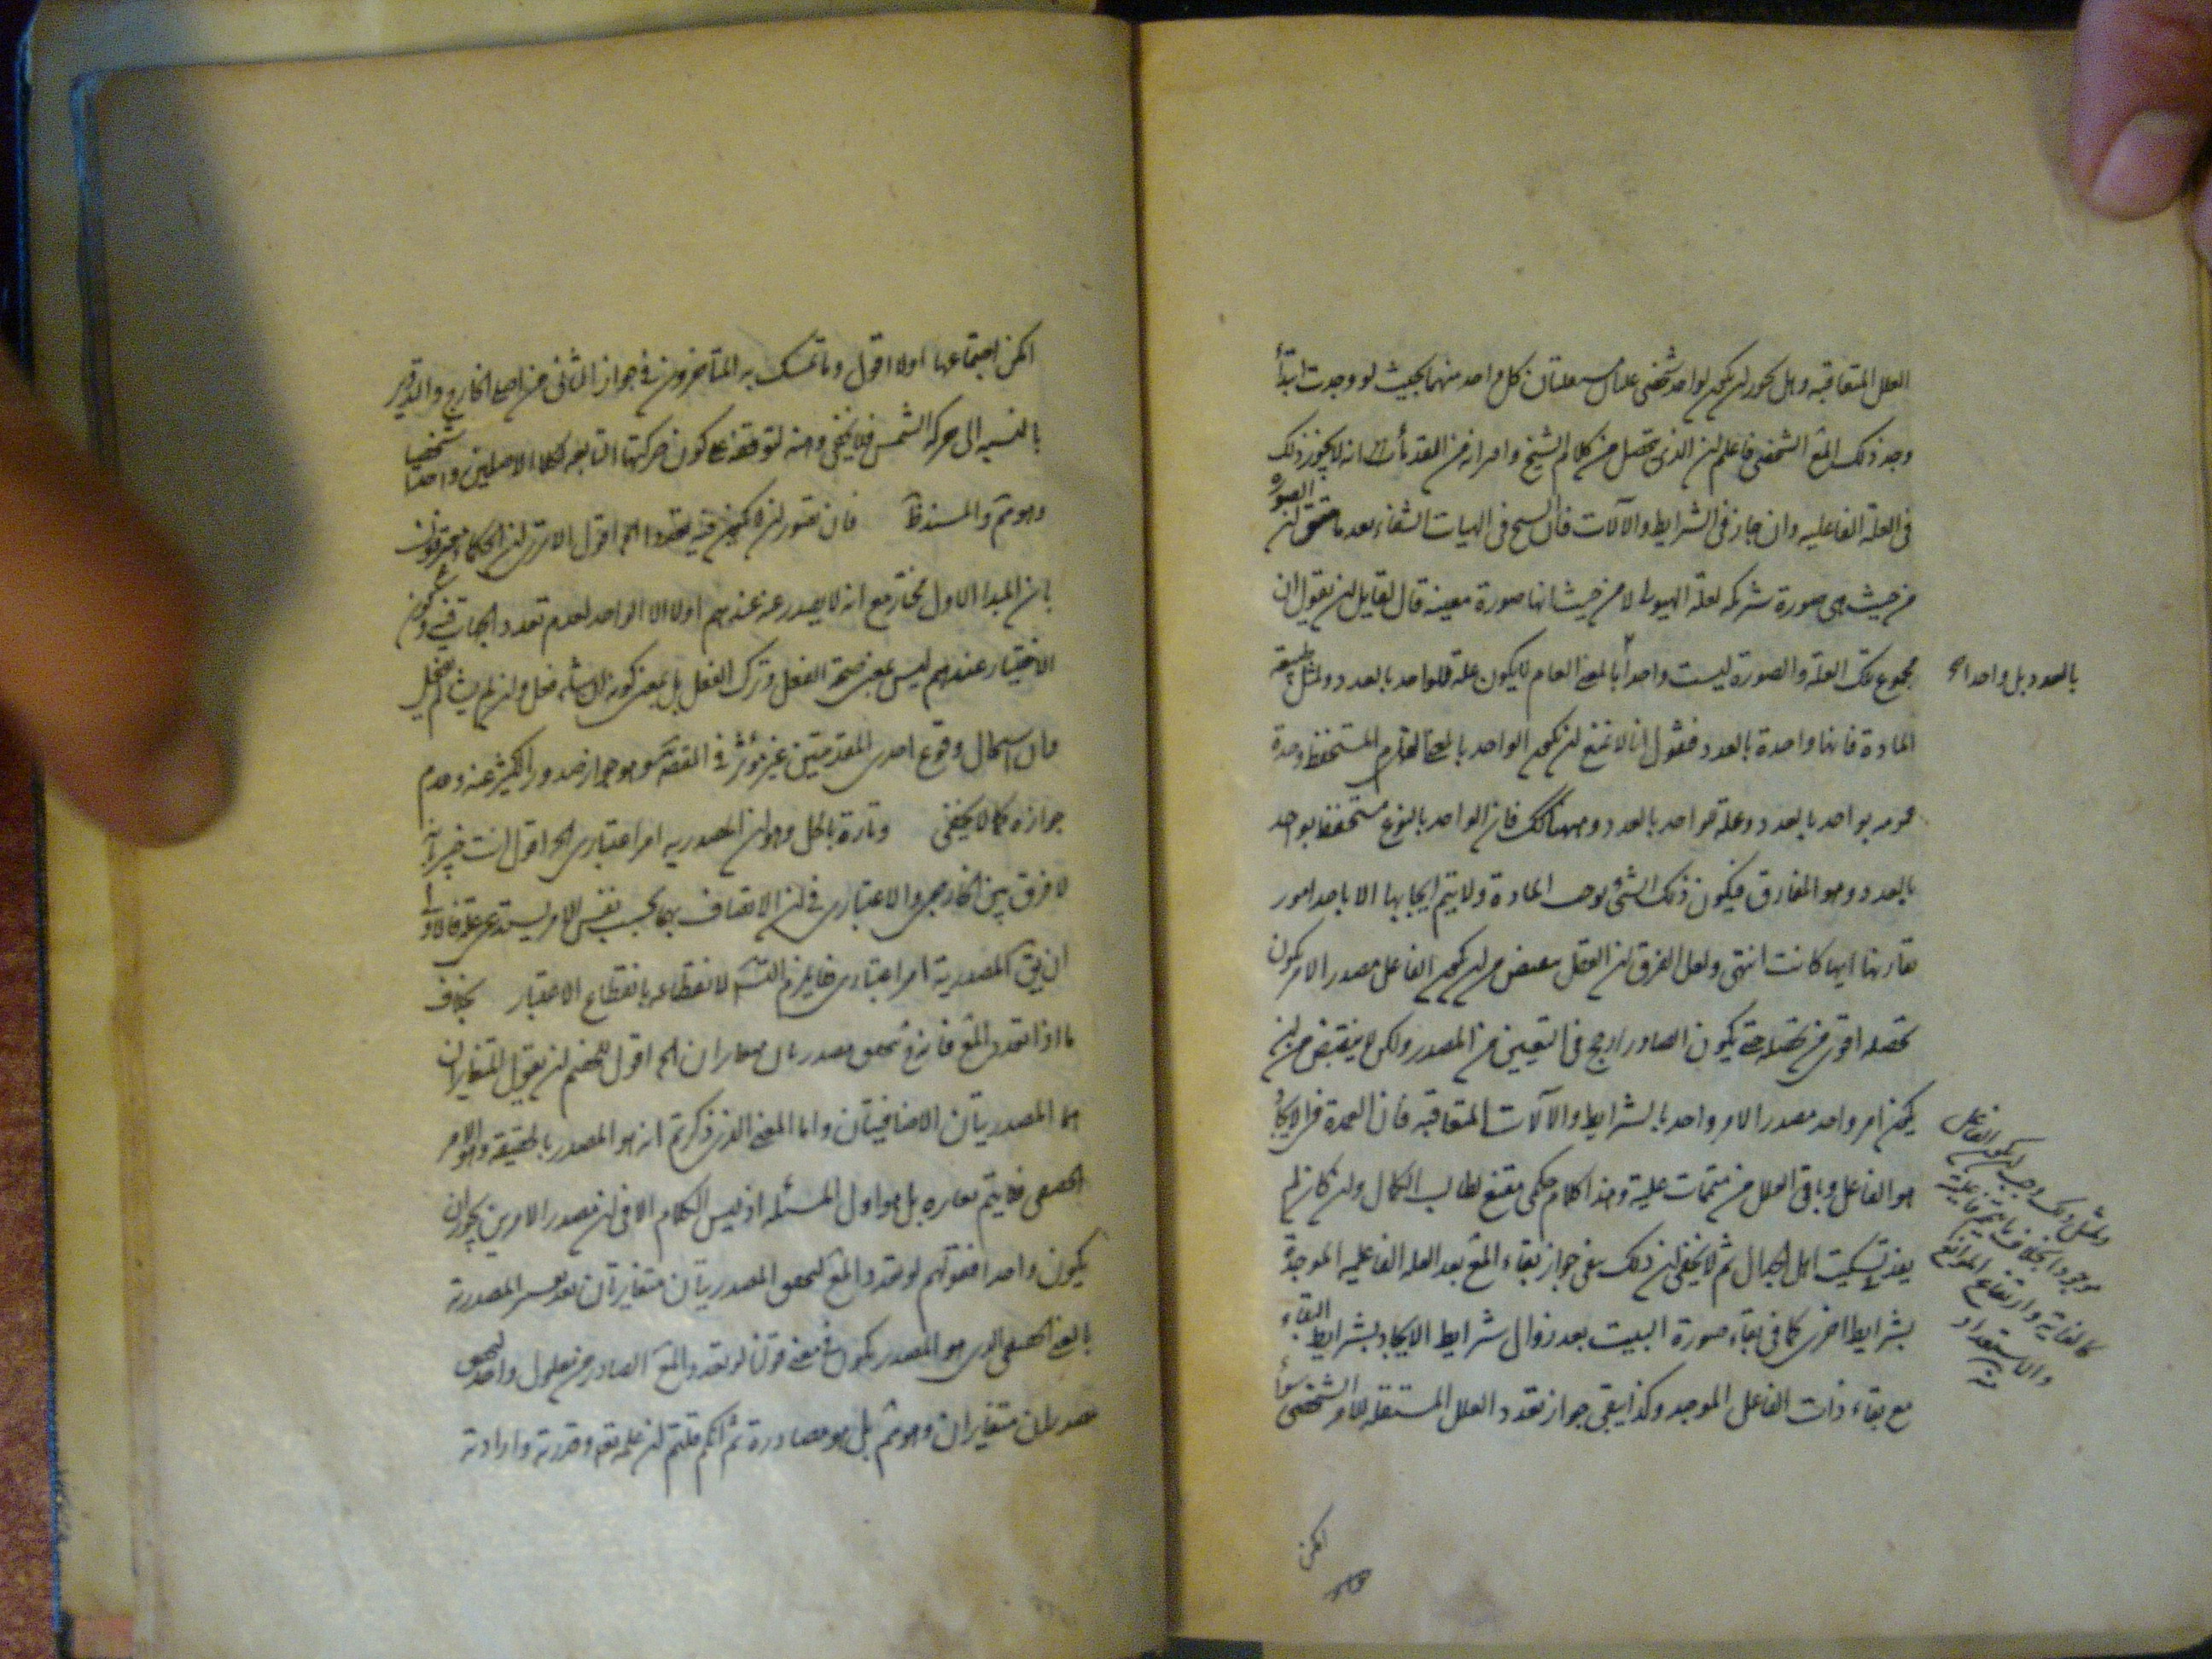 العلل المتعاقبه وهل يجوز ان يكون لواحد شخصى علتان مستقلتان كل واحد منهما بحيث لو وجدت ابتدأ
وجد ذلك المع الشخصى فاعلم ان الذى تحصل من كلام الشيخ واقرانه من القدمأ انه لا يجوز ذلك
فى العلة الفاعليه وان جاز فى الشرايط والآلات قال الشيخ فى الهيات الشفاء بعد ما حقق ان الصورة
من حيث هى صورة شركه لعلة الهيولى لا من حيث انها صورة معينه قال لقايل ان يقول ان
مجموع تلك العلة والصورة ليست واحدا بالمعنى العام لا يكون علة للواحد بالعدد ولمثل طبيعة
بالعدد بل واحدا
المادة فانها واحدة بالعدد فنقول انا لا نمنع ان يكون الواحد بالمعنى العام المستحفظ وحدة
عومه بواحد بالعدد وعلة لواحد بالعدد وههنا كك فان الواحد بالنوع مستحفظ بواحد
بالعدد وهو المفارق فيكون ذلك الشئ يوجب المادة ولا يتم ايجابها الا باحد امور
تقارنها ايها كانت انتهى ولعل الفرق ان العقل ينقبض من ان يكون الفاعل مصدر الامر يكون
تحصله اقوى من تحصله حتى يكون الصادر ارجح فى التعيين من المصدر ولكن لا ينقبض من ان
يكون امر واحد مصدر الامر واحد بالشرايط والآلات المتعاقبه فان العمدة فى الايجاد
هو الفاعل وباقى العلل من متممات علية وهذا كلام حكمى مقنع لطالب الكمال وان كان لم
يفد تسكيت اهل الجدال ثم لا يخفى ان ذلك ينفى جواز بقاء المع بعد العله الفاعليه الموجدة
بشرايط اخرى كما فى بقاء صورة البيت بعد زوال شرايط الايجاد بشرايط البقاء
مع بقاء ذات الفاعل الموجد وكذا يبقى جواز تعدد العلل المستقله للامر الشخصى سوأ
موجودا بخلاف ما يتمم فاعليته
كالغاية وارتفاع الموانع
والاستعداد
امكن
امكن اجتماعها اولا اقول وما تمسك به المتاخرون فى جواز الثانى من اصلى الخارج والتدوير
بالنسبه الى حركه الشمس فلا يخفى وهنه لتوقفه على كون حركتها التابعه لكلا الاصلين واحدا شخصيا
وهو مم والمسند ظ فان تصور ان لا يكون فيه تعدد الخ اقول الا ترى ان الحكماء معترفون
بان المبدا الاول مختار مع انه لا يصدر عنه عندهم اولا الا الواحد لعدم تعدد الجهات فيه
الاختيار عندهم ليس بمعنى صحة الفعل وترك الفعل بل بمعنى كونه ان شاء فعل وان لم يشأ لم يفعل
وان استحال وقوع احدى المقدمتين غير مؤثر فى المقصد وهو جواز صدور الكثير عنه وعدم
جوازه كما لا يخفى وتارة بالحل وهو ان المصدريه امر اعتبارى الخ اقول انت خبير بانه
لا فرق بين الخارجى والاعتبارى فى ان الاتصاف بها بحسب نفس الامر يستدعى علة فالاولى
ان يق المصدرية امر اعتبارى فلا يلزم التسـ لانقطاعه بانقطاع الاعتبار بخلاف
ما اذا تعدد المع فانه ح تحقق مصدريتان متغايران الخ اقول للخصم ان يقول المتغايران
هما المصدريتان الاضافيتان واما المعنى الذى ذكرتم انه هو المصدر بالحقيقه وهو الامر
الحقيقى فلا يتم تغايره بل هو اول المسئله اذ ليس الكلام الا فى ان مصدر الامرين يجوز ان
يكون واحدا فقولهم لو تعدد المع لتحقق المصدريتان متغايرتان بعد تفسير المصدرية
بالمعنى الحقيقى الذى هو المصدر يكون فى معنى قولنا لو تعدد المع الصادر من معلول واحد لتحقق
مصدران متغايران وهو مم بل هو مصادرة ثم انكم قلتم ان علمه تع وقدرته وارادته